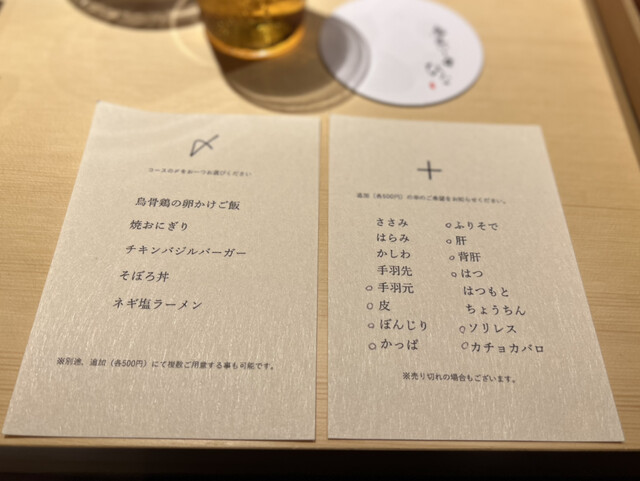 〆
コースの〆を一つお選びください
烏骨鶏の卵かけご飯
焼おにぎり
チキンバジルバーガー
そぼろ丼
ネギ塩ラーメン
※別途、追加（各500円）にて複数ご用意する事も可能です。
＋
追加（各500円）の串のご希望をお知らせください。
ささみ
はらみ
かしわ
手羽先
○手羽元
○皮
○ぼんじり
○かっぱ
○ふりそで
○肝
○背肝
○はつ
はつもと
ちょうちん
○ソリレス
○カチョカバロ
※売り切れの場合もございます。